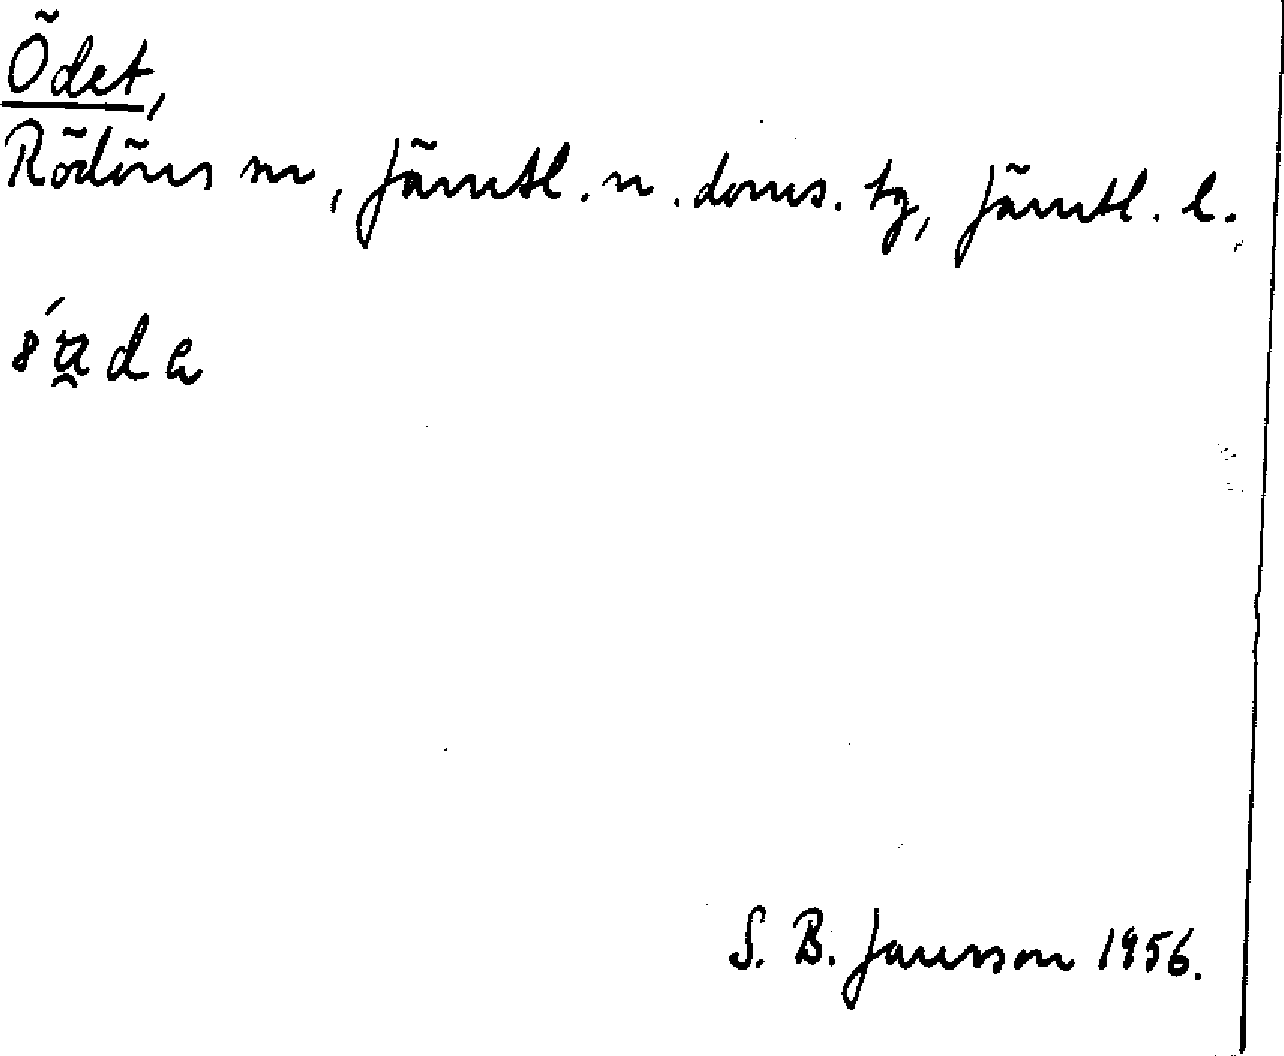 Ödet,
Rödöns sn, Jämtl. n. doms. tg, Jämtl. l.
S. B. Jansson 1956.